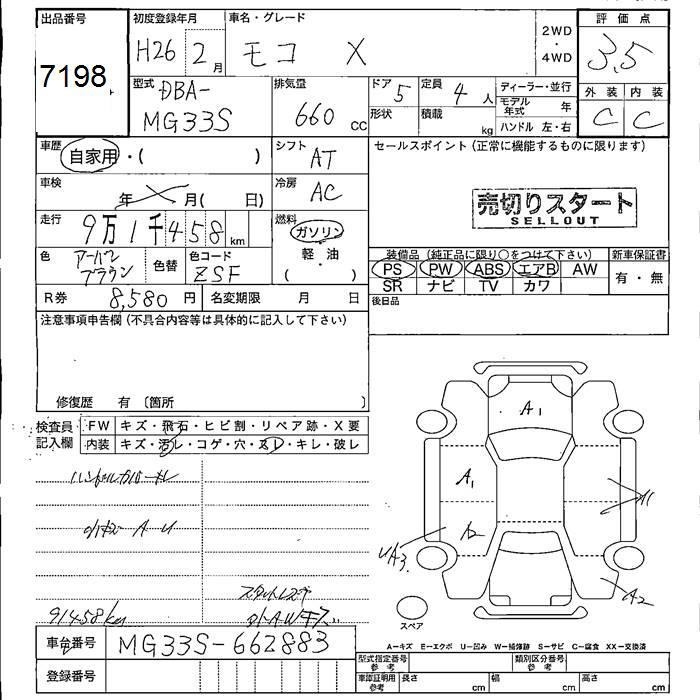 出品番号 初度登録年月 車名・グレード 評価点
7198 H26 2月 モコ X 2WD・4WD 3.5
型式 DBA-MG33S 排気量 660cc ドア 5 定員 4人 ディーラー・並行 外装 内装
形状 積載 kg モデル年式 年 ハンドル 左・右 C C
車歴 自家用・( ) シフト AT セールスポイント (正常に機能するものに限ります)
車検 年 月( 日) 冷房 AC 売切りスタート
SELLOUT
走行 9万1千458km 燃料 ガソリン
軽・油
( ・ )
色 アーバンブラウン 色替 色コード ZSF 装備品 (純正品に限り○をつけて下さい) 新車保証書
PS PW ABS エアB AW 有・無
SR ナビ TV カワ
R券 8,580円 名変期限 月 日 後日品
注意事項申告欄 (不具合内容等は具体的に記入して下さい)
修復歴 有 〔箇所 〕
検査員記入欄 FW キズ・飛石・ヒビ割・リペア跡・X要
内装 キズ・汚レ・コゲ・穴・スレ・キレ・破レ
A1
A1
A2
A2
スペア
91458km
A−キズ E−エクボ U−凹み W−補修跡 S−サビ C−腐食 XX−交換済
車台番号 MG33S-662883 型式指定番号参考 類別区分番号参考
登録番号 車庫証明用参考 長さ cm 幅 cm 高さ cm